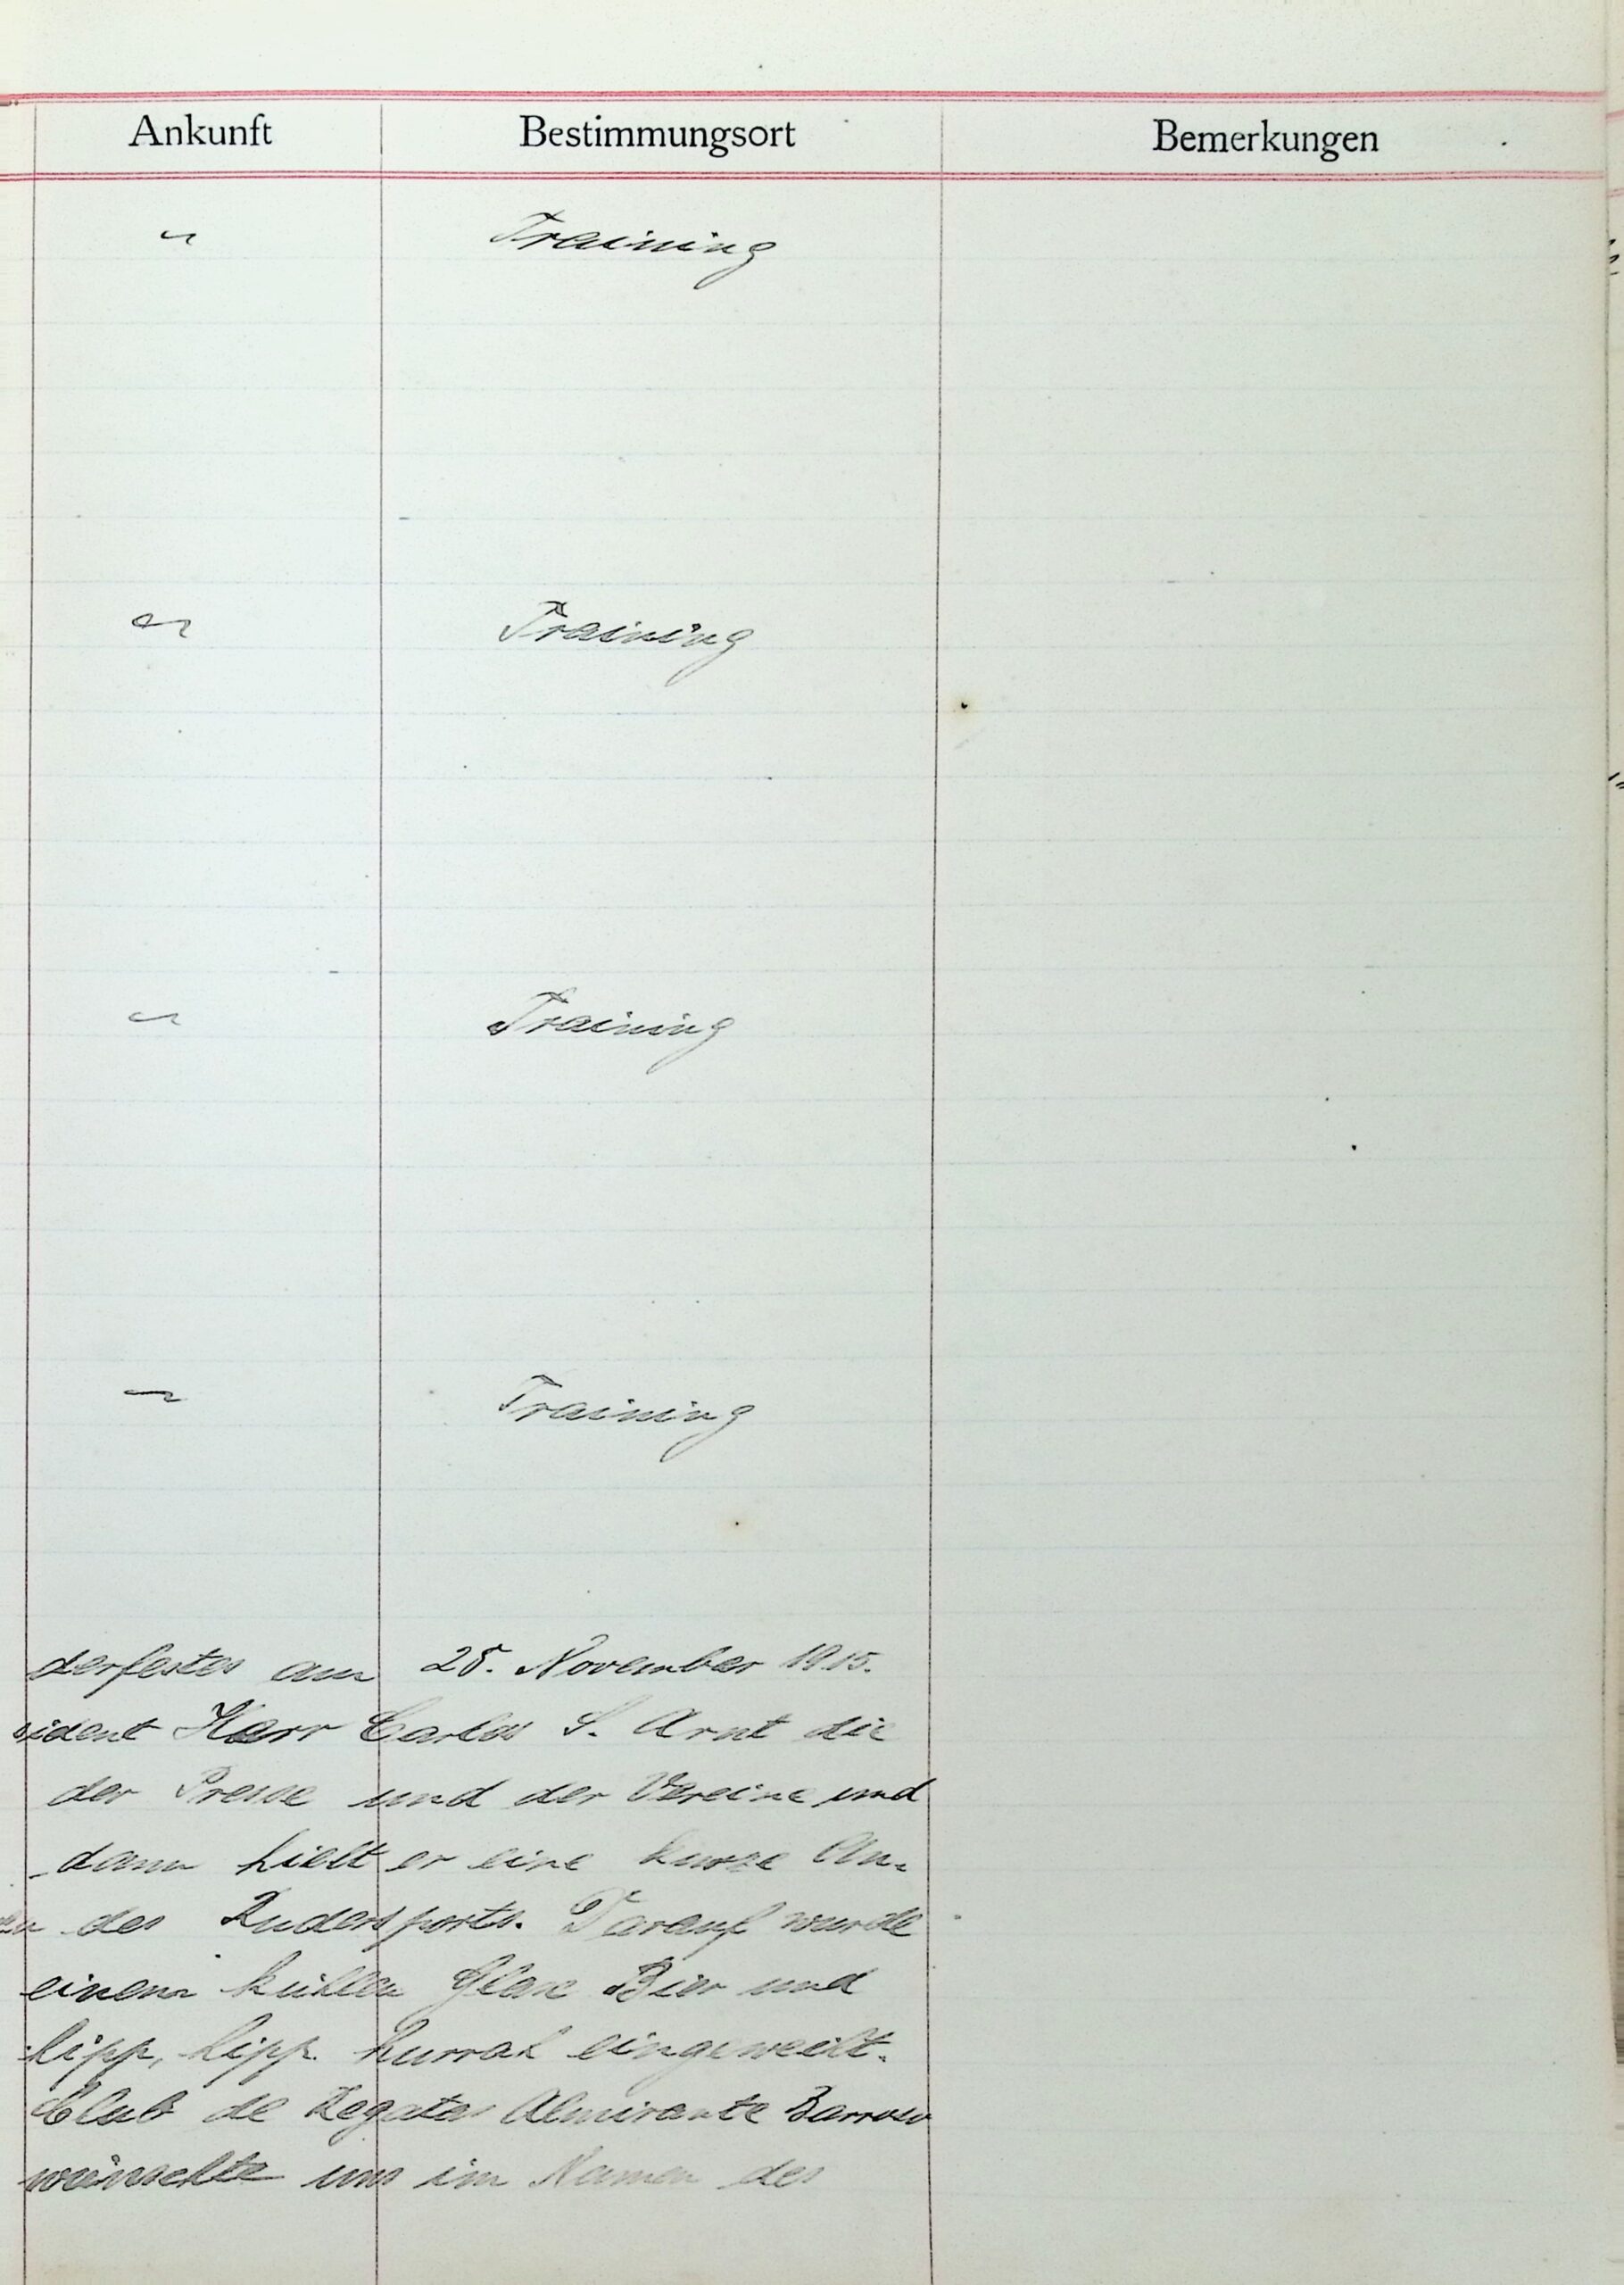 Ankunft Bestimmungsort Bemerkungen
" Training
" Training
" Training
" Training
derfestes am 28. November 1915.
sident Herr Carlos S. Arnt die
der Presse und der Vereine und
dann hielt er eine kurze An-
des Rudersports. Darauf wurde
einem kühlen Glase Bier und
hipp, hipp hurrah eingeweiht.
Club de Regatas Almirante Barroso
wünschte uns im Namen des